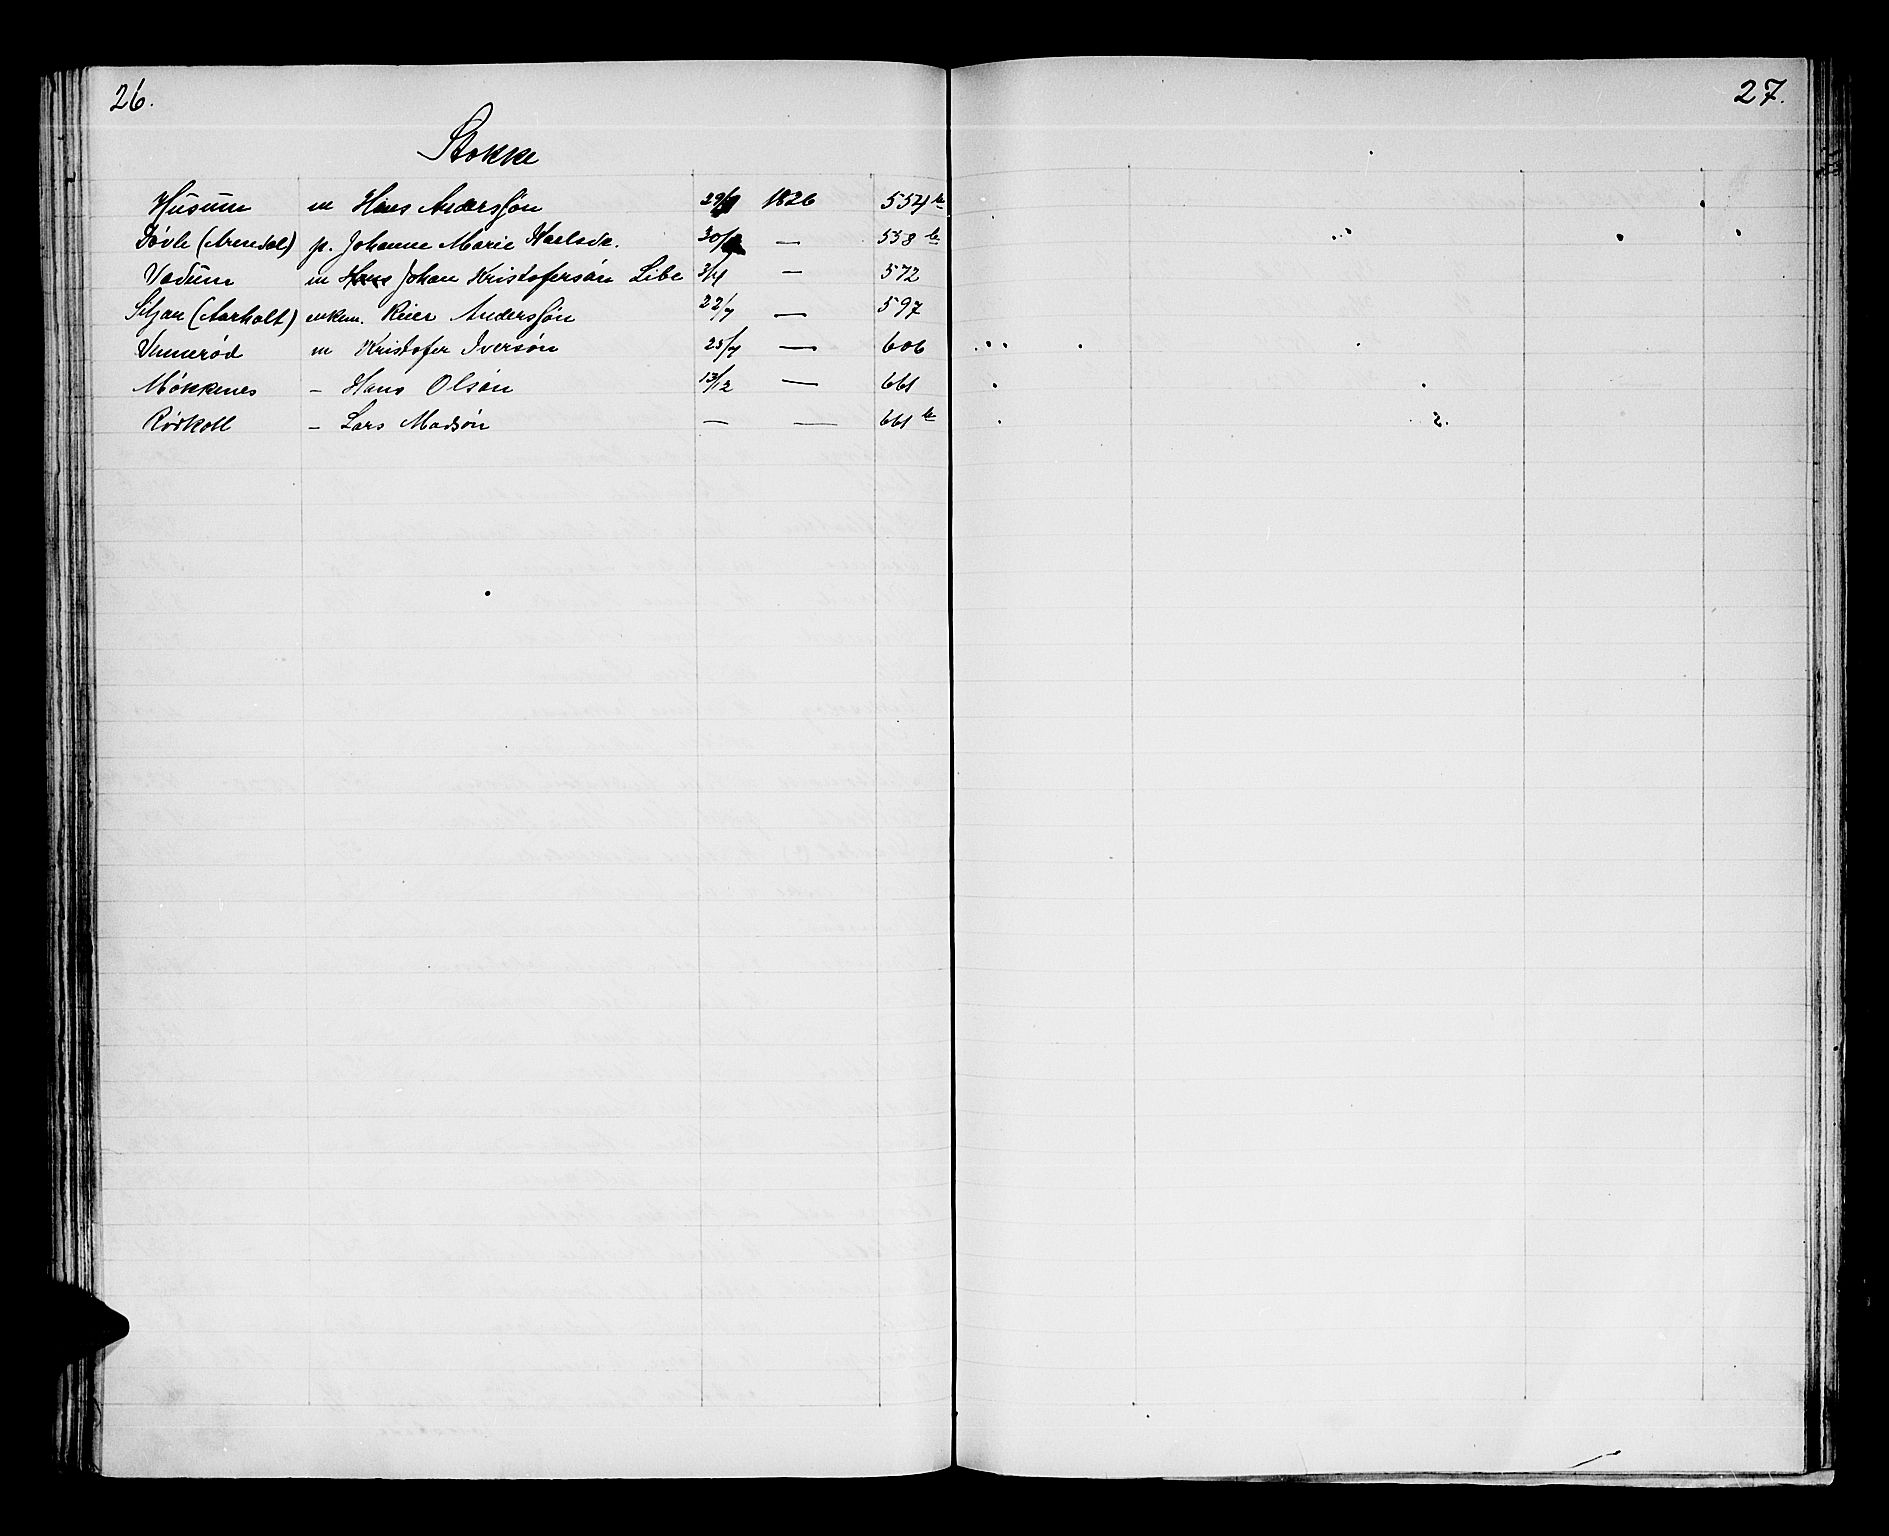 26.
27.
Stokke
Husum m Hans Anderssøn 1826 554 b
Døvle (Arendal) p. Johanne Marie Karlsdr. — 558 b
Vadum m Johan Kristofersøn Libe 3/4 — 572
Siljan (Aarholt) enkem. Reier Anderssøn 22/7 — 597
Unnerød m Kristofer Iversøn 25/7 — 606
Møkkenes – Hans Olsøn 13/12 — 661
Rødkoll – Lars Madsøn — — 661 b